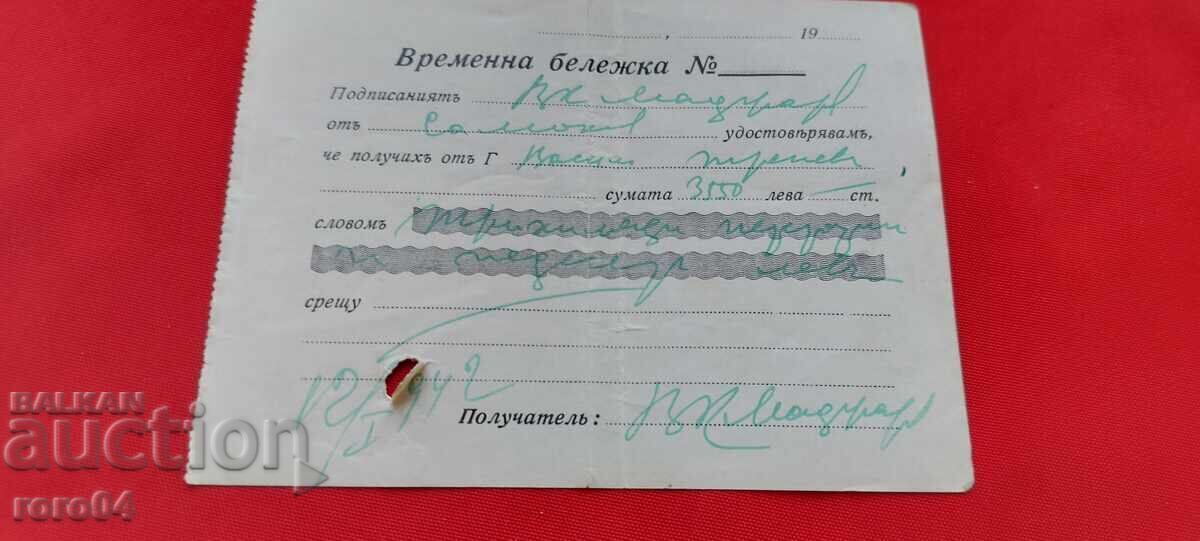 19
Временна бележка №
Подписаниятъ В К Маджаров
отъ Самоков удостовѣрявамъ,
че получихъ отъ Г Васил ,
сумата 3550 лева — ст.
словомъ три хиляди
и педесет лева
срещу
12/I 942
Получатель: В К Маджаров
BALKAN
auction
roro04